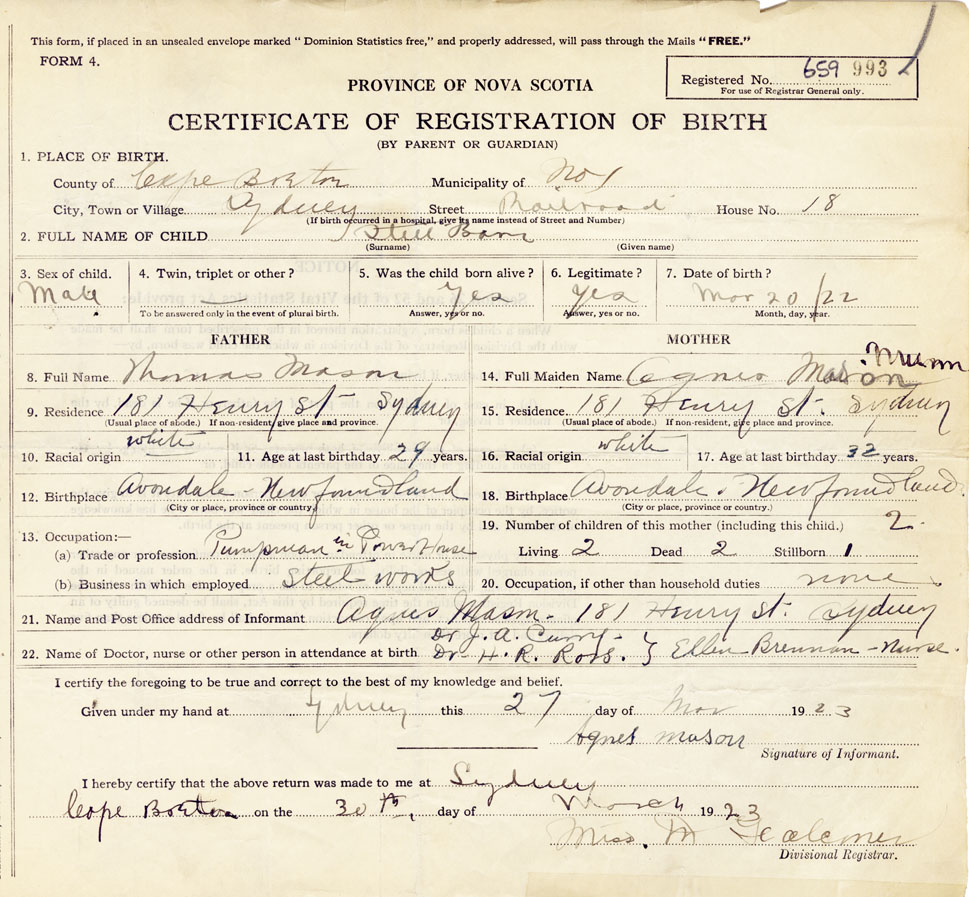 This form, if placed in an unsealed envelope marked “ Dominion Statistics free,” and properly addressed, will pass through the Mails “FREE.”
FORM 4.
Registered No. 659 993
For use of Registrar General only.
PROVINCE OF NOVA SCOTIA
CERTIFICATE OF REGISTRATION OF BIRTH
(BY PARENT OR GUARDIAN)
1. PLACE OF BIRTH.
County of Cape Breton Municipality of No 1
City, Town or Village Sydney Street Railroad House No. 18
(If birth occurred in a hospital, give its name instead of Street and Number)
2. FULL NAME OF CHILD Still Born
(Surname) (Given name)
3. Sex of child. 4. Twin, triplet or other? 5. Was the child born alive? 6. Legitimate? 7. Date of birth?
Male Yes Yes Mar 20/22
To be answered only in the event of plural birth. Answer, yes or no. Answer, yes or no. Month, day, year.
FATHER MOTHER
8. Full Name Thomas Mason 14. Full Maiden Name Agnes Mason
9. Residence 181 Henry St Sydney 15. Residence. 181 Henry St. Sydney
(Usual place of abode.) If non-resident, give place and province. (Usual place of abode.) If non-resident, give place and province.
10. Racial origin white 11. Age at last birthday 29 years. 16. Racial origin white 17. Age at last birthday 32 years.
12. Birthplace Avondale - Newfoundland 18. Birthplace Avondale. Newfoundland
(City or place, province or country.) (City or place, province or country.)
13. Occupation:— 19. Number of children of this mother (including this child.) 2
(a) Trade or profession Pumpman in Power House Living 2 Dead 2 Stillborn 1
(b) Business in which employed Steel works 20. Occupation, if other than household duties none
21. Name and Post Office address of Informant Agnes Mason - 181 Henry St. Sydney
22. Name of Doctor, nurse or other person in attendance at birth Dr J. A. Curry - Dr H. R. Ross. } Ellen Brennan - nurse.
I certify the foregoing to be true and correct to the best of my knowledge and belief.
Given under my hand at Sydney this 27 day of Mar 1923
Agnes Mason
Signature of Informant.
I hereby certify that the above return was made to me at Sydney
Cape Breton on the 30th, day of March 1923
Miss. M
Divisional Registrar.